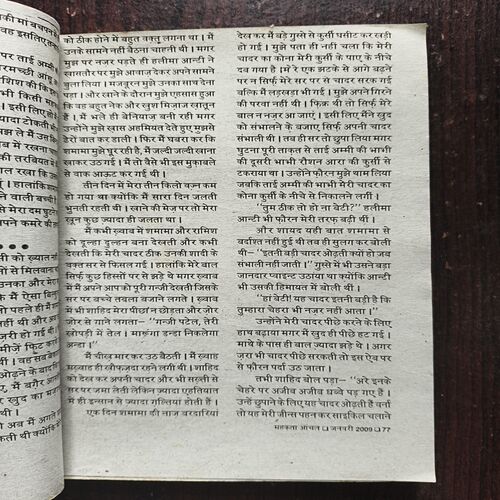 की मां बचपन में
वह इसलिए त
पर ताई अम्मी
रमच्छी आंटू
शिश की कि
भी किसी मह
इसी लिए हो
झ ले में उस
की तरबियत में
बाल रखा कि
। हालांकि शमा
ने वाली बच्ची
मेरा दम घुट
पने कमरे की
को ठीक होने में बहुत वक्त लगना था । मैं
उनके सामने नहीं बैठना चाहती थी । मगर
मुझ पर नजर पड़ते ही हलीमा आन्टी ने
खासतौर पर मुझे आवाज देकर अपने सामने
बुला लिया । मजबूरन मुझे उनके पास बैठना
पड़ा । और खाने के दौरान मुझे एहसास हुआ
कि वह बहुत नेक और खुश मिज़ाज ख़ातून
हैं । मैं भले ही बेनियाज बनी रही मगर
उन्होंने मुझे खास अहमियत देते हुए मुझसे
ढेरों बात कर डाली । फिर मैं घबरा कर कि
शमामा मुझे घूर रही है, मैं जल्दी जल्दी खाना
खाकर उठ गई । मैं तो वैसे भी इस मुकाबले
से वाक आऊट कर गई थी ।
तीन दिन में मेरा तीन किलो वज़्न कम
हो गया था क्योंकि मैं सारा दिन जलती
भुनती रहती थी । खाने की मेज पर तो मेरा
खून कुछ ज्यादा ही जलता था ।
मैं कभी ख्वाब में शमामा और रामिश
को दूल्हा दुल्हन बना देखती और कभी
देखती कि मेरी चादर ठीक उनकी शादी के
वक्त सर से फिसल गई । हालांकि मेरे बाल
सिर्फ कुछ हिस्सों पर से झड़े थे मगर ख्वाब
में मैं अपने आप को पूरी गन्जी देखती जिसके
सर पर बच्चे तबला बजाने लगते । ख्वाब
में भी शाहिद मेरा पीछा न छोड़ता और जोर
जोर से गाने लगता— ''गन्जी पटेल, तेरी
खोपड़ी में तेल । मारूंगा डन्डा निकलेगा
अन्डा ।''
मैं चीख मार कर उठ बैठती । मैं ख़्वाह
मख़्वाह ही ख़ौफ़ज़दा रहने लगी थी । शाहिद
को देख कर अपनी चादर और भी सख्ती से
सर पर जमा लेती लेकिन ज्यादा एहतियात
में ही इन्सान से ज्यादा गल्तियां होती हैं ।
एक दिन शमामा की नाज बरदारियां
देख कर मैं बड़े गुस्से से कुर्सी घसीट कर खड़ी
हो गई । मुझे पता ही नहीं चला कि मेरी
चादर का कोना मेरी कुर्सी के पाए के नीचे
दब गया है । मेरे एक झटके से आगे बढ़ने
पर न सिर्फ मेरे सर पर से चादर सरक गई
बल्कि मैं लड़खड़ा भी गई । मुझे अपने गिरने
की परवा नहीं थी । फ़िक्र थी तो सिर्फ मेरे
बाल न नजर आ जाएं । इसी लिए मैंने खुद
को संभालने के बजाए सिर्फ अपनी चादर
संभाली थी । तब ही सर तो छुपा लिया मगर
घुटना पूरी ताकत से ताई अम्मी की भाभी
की दूसरी भाभी रौशन आरा की कुर्सी से
टकराया था । उन्होंने फौरन मुझे थाम लिया
जबकि ताई अम्मी की भाभी मेरी चादर का
कोना कुर्सी के नीचे से निकालने लगीं ।
''तुम ठीक तो हो ना बेटी?'' हलीमा
आन्टी भी फौरन मेरी तरफ बढ़ी थीं ।
और शायद यही बात शमामा से
बर्दाश्त नहीं हुई थी तब ही सुलग कर बोली
थी— ''इतनी बड़ी चादर ओढ़ती क्यों हो जब
संभाली नहीं जाती ।'' गुस्से में भी उसने बड़ा
जानदार प्वाइन्ट उठाया था क्योंकि आन्टी
भी उसकी हिमायत में बोली थीं ।
''हां बेटी! यह चादर इतनी बड़ी है कि
तुम्हारा चेहरा भी नज़र नहीं आता ।''
उन्होंने मेरी चादर पीछे करने के लिए
हाथ बढ़ाया मगर मैं खुद ही पीछे हट गई ।
माथे के पास ही बाल ज्यादा झड़े थे । अगर
जरा भी चादर पीछे सरकती तो इस ऐब पर
से फौरन पर्दा उठ जाता ।
तभी शाहिद बोल पड़ा— ''अरे इनके
चेहरे पर अजीब अजीब धब्बे पड़ गए हैं ।
उन्हें छुपाने के लिए यह चादर ओढ़ती हैं वर्ना
तो यह मेरी जीन्स पहन कर साइकिल चलाने
महकता आंचल ❑ जनवरी 2009 ❑ 77